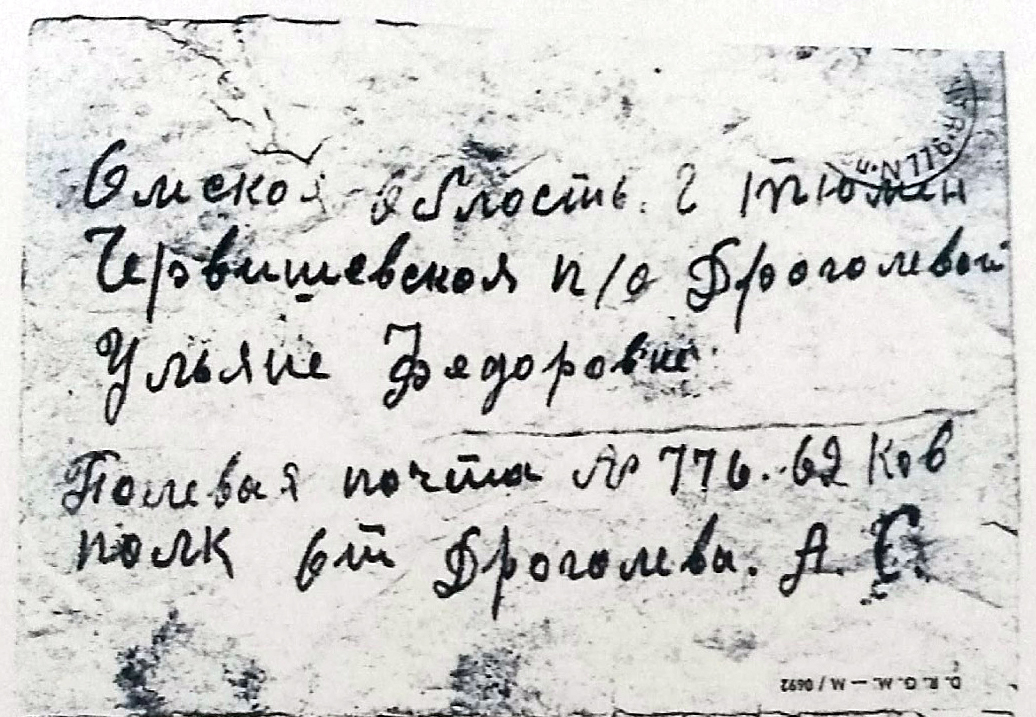 Омская область. г Тюмен
Червишевская п/о Дроголевой
Ульяне Федоровне.
Полевая почта № 776. 62 Ков
полк От Дроголева. А. С.
D. R. G. M. — M / 0692